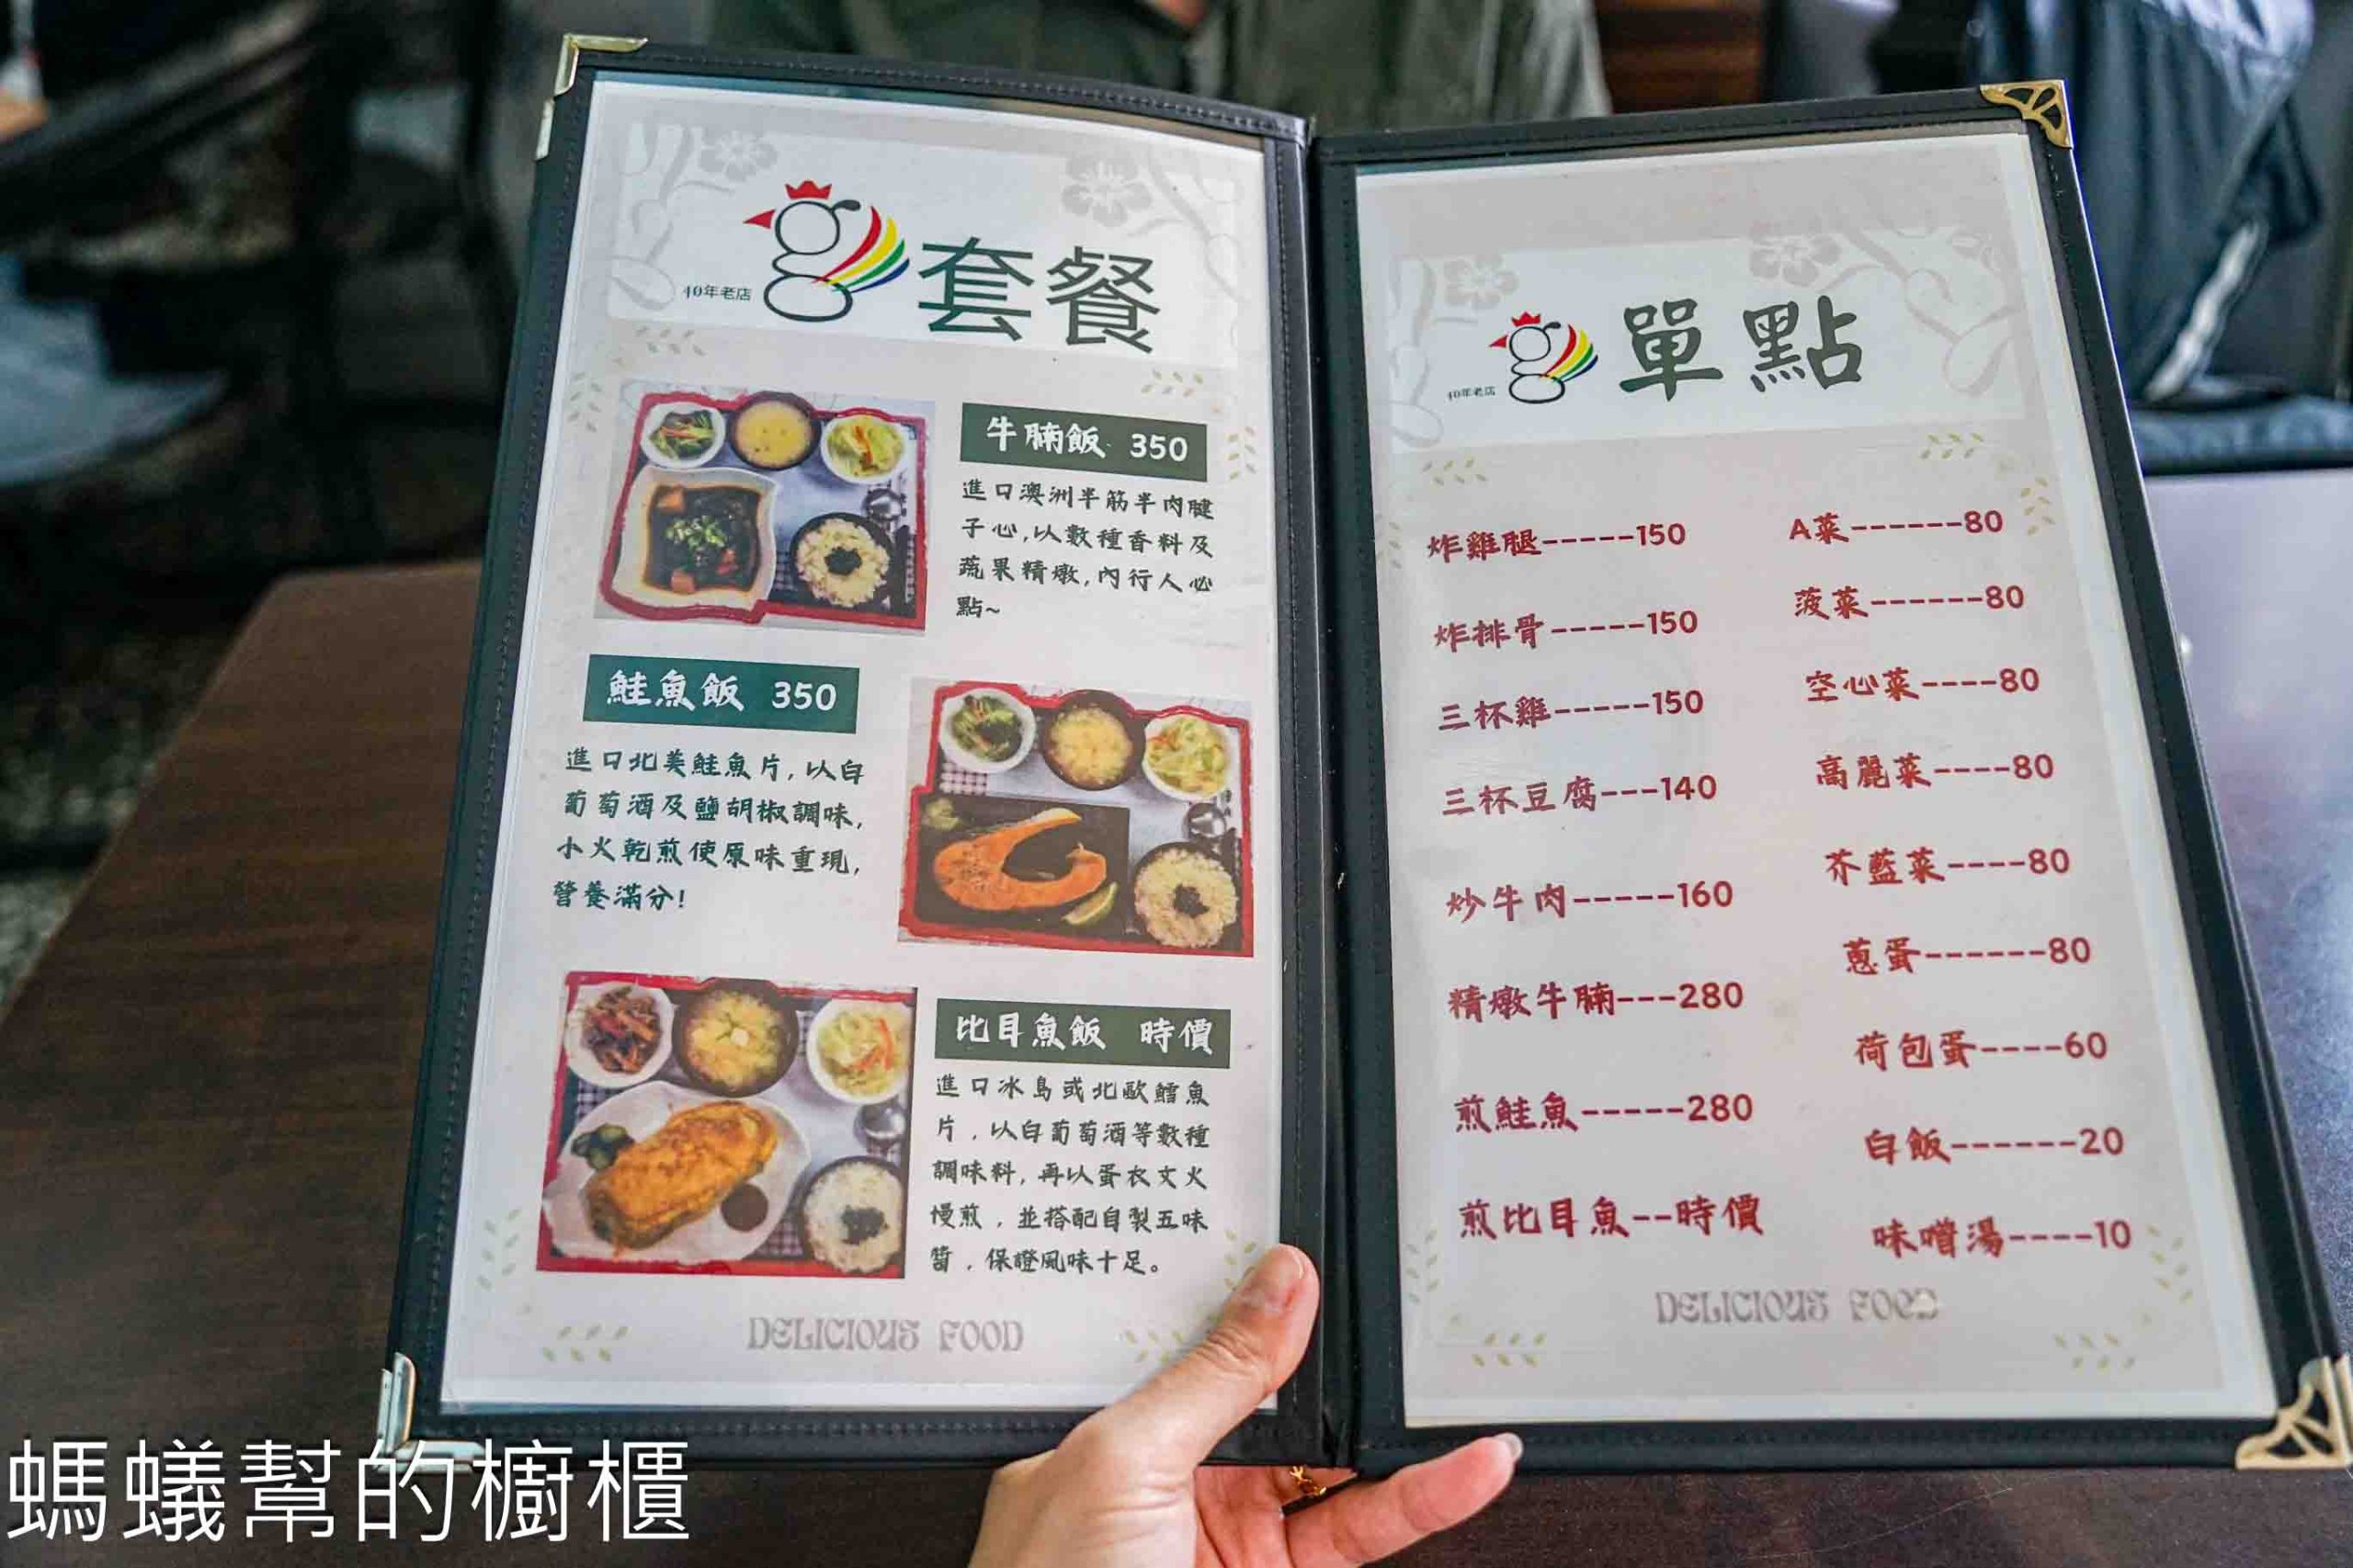 40年老店
套餐
牛腩飯 350
進口澳洲半筋半肉腱
子心,以數種香料及
蔬果精燉,內行人必
點~
鮭魚飯 350
進口北美鮭魚片,以白
葡萄酒及鹽胡椒調味,
小火乾煎使原味重現,
營養滿分!
比目魚飯 時價
進口冰島或北歐鱈魚
片,以白葡萄酒等數種
調味料,再以蛋衣文火
慢煎,並搭配自製五味
醬,保證風味十足。
DELICIOUS FOOD
40年老店
單點
炸雞腿-----150
炸排骨-----150
三杯雞-----150
三杯豆腐---140
炒牛肉-----160
精燉牛腩---280
煎鮭魚-----280
煎比目魚--時價
A菜------80
菠菜------80
空心菜----80
高麗菜----80
芥藍菜----80
蔥蛋------80
荷包蛋----60
白飯------20
味噌湯----10
DELICIOUS FOOD
螞蟻幫的櫥櫃